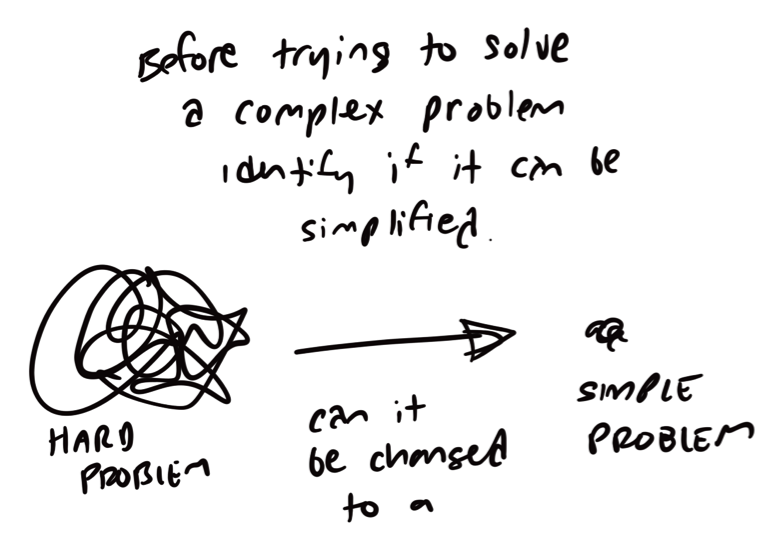 Before trying to solve
a complex problem
identify if it can be
simplified.
HARD
PROBLEM
can it
be changed
to a
SIMPLE
PROBLEM